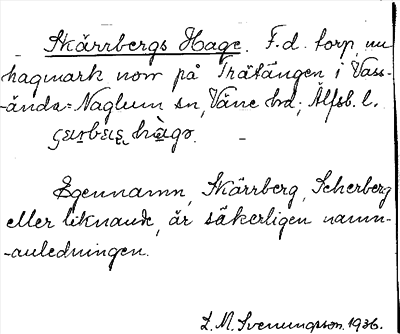 Skärrbergs Hage. F.d. torp, nu
hagmark norr på Trätången i Vass-
-ända-Naglum sn, Väne hd; Älfsb. l.
Egennamn, Skärrberg, Scherberg
eller liknande, är säkerligen namn-
-anledningen.
L. M. Svenungsson. 1936.